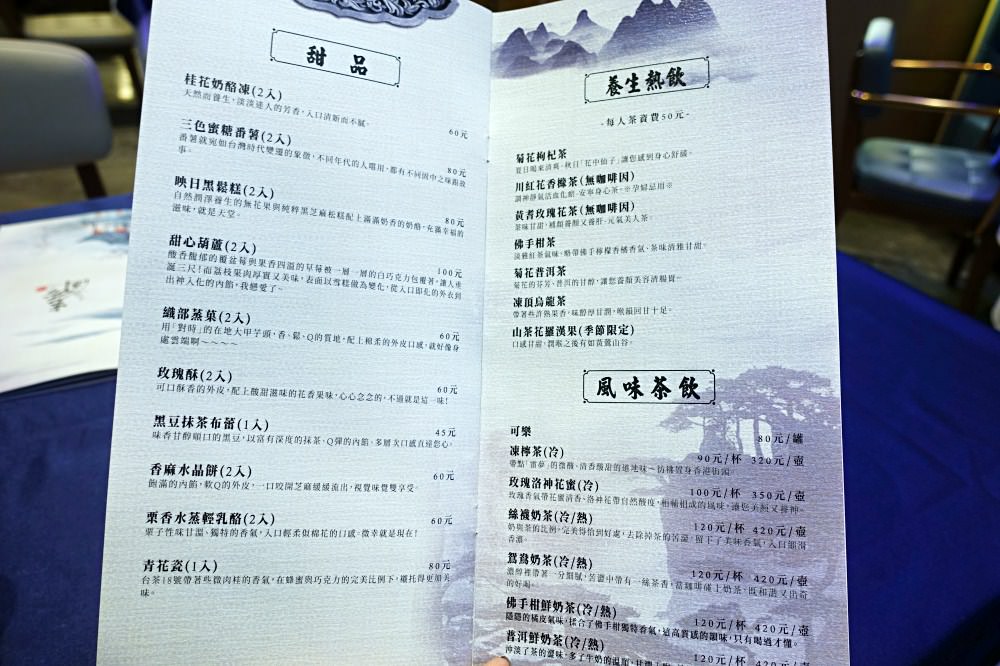 甜品
桂花奶酪凍(2入)
天然而養生，淡淡迷人的芳香，入口清新而不膩。
60元
三色蜜糖番薯(2入)
番薯就宛如台灣時代變遷的象徵，不同年代的人嚐用，都有不同固中之味跟故
事。
80元
映日黑鬆糕(2入)
自然潤澤養生的無花果與純粹黑芝麻松糕配上滿滿奶香的奶酪，充滿幸福的
滋味，就是天堂。
80元
甜心葫蘆(2入)
100元
酸香馥郁的覆盆莓與果香四溢的草莓被一層一層的白巧克力包覆著，讓人垂
誕三尺！而荔枝果肉厚實又美味，表面以雪糕做為變化，從入口即化的外衣到
出神入化的內餡，我戀愛了。
織部蒸菓(2入)
60元
用「對時」的在地大甲芋頭，香、鬆、Q的質地，配上棉柔的外皮口感，就好像身
處雲端啊～～～～
玫瑰酥(2入)
60元
可口酥香的外皮，配上酸甜滋味的花香果味，心心念念的，不過就是這一味！
黑豆抹茶布蕾(1入)
45元
味香甘醇順口的黑豆，以富有深度的抹茶、Q彈的內餡，多層次口感直達您心。
香麻水晶餅(2入)
60元
飽滿的內餡，軟Q的外皮，一口咬開芝麻緩緩流出，視覺味覺雙享受。
栗香水蒸輕乳酪(2入)
60元
栗子性味甘溫、獨特的香氣，入口輕柔似棉花的口感。微幸就是現在！
青花瓷(1入)
80元
台茶18號帶著些微肉桂的香氣，在蜂蜜與巧克力的完美比例下，襯托得更加美
味。
養生熱飲
-每人茶資費50元-
菊花枸杞茶
夏日喝來清爽、秋日「花中仙子」讓您感到身心舒緩。
川紅花香橼茶(無咖啡因)
調神靜氣活血化瘀、安寧身心茶。※孕婦忌用※
黃耆玫瑰花茶(無咖啡因)
茶味甘甜，補顏養顏又養肝、元氣美人茶。
佛手柑茶
淡雅紅茶氣味，略帶佛手檸檬香橘香氣、茶味清雅甘甜。
菊花普洱茶
菊花的芬芳、普洱的甘醇，讓您養顏美容清腸胃。
凍頂烏龍茶
帶著些許熟果香，味醇厚甘潤，喉韻回甘十足。
山茶花羅漢果(季節限定)
口感甘甜，潤喉之後有如黃鶯山谷。
風味茶飲
可樂
80元/罐
凍檸茶(冷)
90元/杯 320元/壺
帶點「靈夢」的微酸、清香酸甜的道地味～彷彿置身香港街頭。
玫瑰洛神花蜜(冷)
100元/杯 350元/壺
玫瑰香氣帶花蜜清香、洛神花帶自然酸度，相輔相成的風味，讓您美顏又提神。
絲襪奶茶(冷/熱)
120元/杯 420元/壺
奶與茶的比例，完美得恰到好處，去除掉茶的苦澀，留下了美味香氣，入口細滑
香濃。
鴛鴦奶茶(冷/熱)
120元/杯 420元/壺
濃醇裡帶著一分細膩，苦澀中帶有一絲茶香，當咖啡碰上奶茶，既和諧又出奇
的好喝。
佛手柑鮮奶茶(冷/熱)
120元/杯 420元/壺
隱隱的橘皮氣味，揉合了佛手柑獨特香氣，這高質感的韻味，只有喝過才懂。
普洱鮮奶茶(冷/熱)
120元/杯 420元/壺
沖淡了茶的澀味，多了牛奶的溫順，